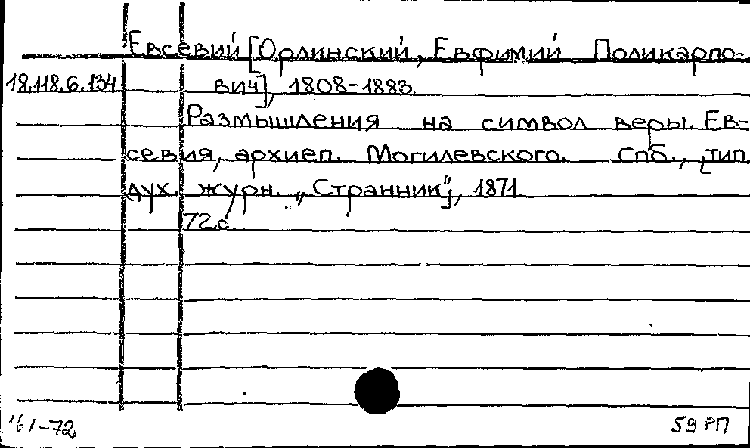 Евсевий [Орлинский, Евфимий Поликарпо-
18.118.6.134 вич], 1808-1883.
Размышления на символ веры. Ев-
севия, архиеп. Могилевского. Спб., [тип.
дух. журн. „Странник"], 1871.
72 с.
161-72 59 РП